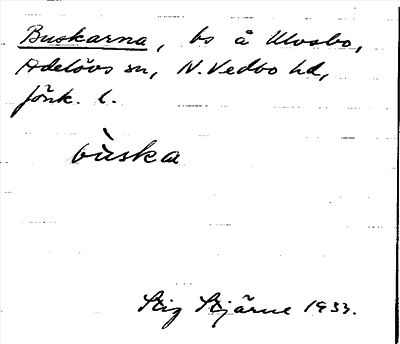 Buskarna, bs å Ulvsbo,
Adelövs sn, N. Vedbo hd,
Jönk. l.
bùska
Stig Stjärne 1933.